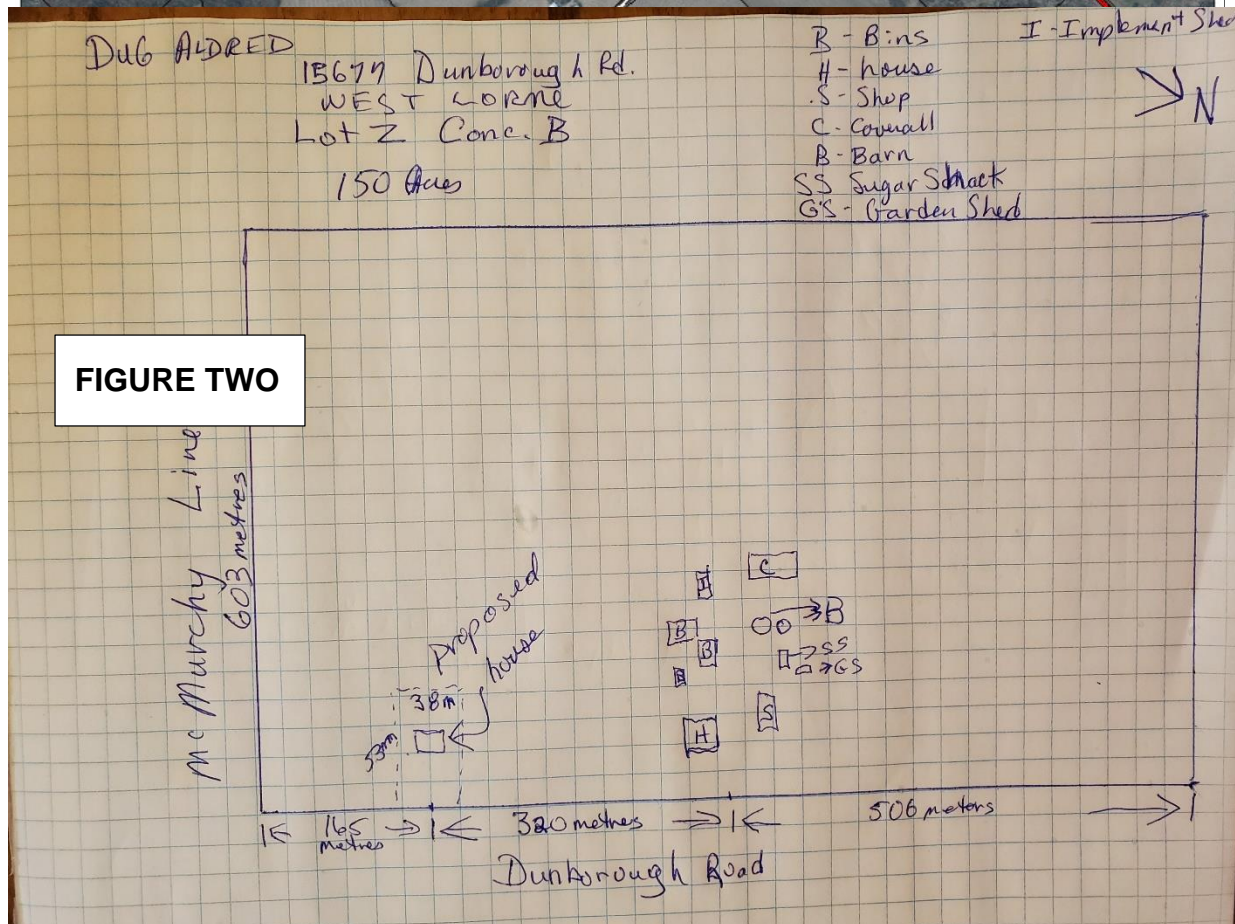 DUG ALDRED
15677 Dunborough Rd.
WEST LORNE
Lot Z Conc. B
150 Acres
B - Bins
H - house
S - Shop
C - Coverall
B - Barn
SS Sugar Shack
GS - Garden Shed
I - Implement Shed
N
FIGURE TWO
McMurchy Line
603 metres
Proposed
house
38m
53m
I
C
B
B
B
SS
GS
H
S
165
metres
320 metres
506 meters
Dunborough Road